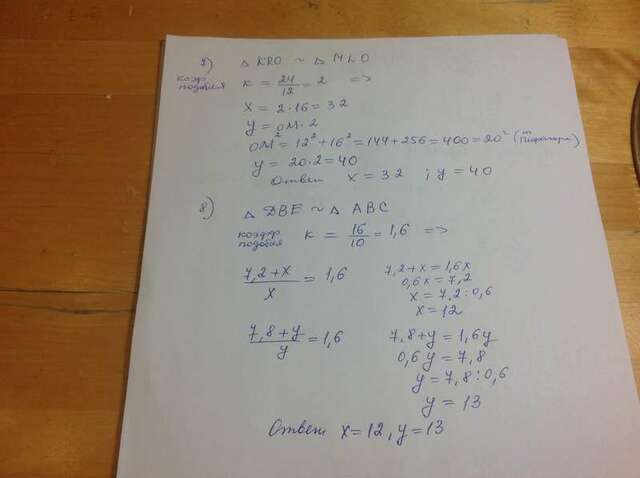 7) △ KRO ~ △ MLO
коэф. подобия k = 24/12 = 2 =>
x = 2·16 = 32
y = OM·2
OM² = 12² + 16² = 144 + 256 = 400 = 20² (т. Пифагора)
y = 20·2 = 40
Ответ x = 32 ; y = 40
8) △ DBE ~ △ ABC
коэфф подобия k = 16/10 = 1,6 =>
(7,2+x)/x = 1,6
7,2+x = 1,6x
0,6x = 7,2
x = 7,2 : 0,6
x = 12
(7,8+y)/y = 1,6
7,8+y = 1,6y
0,6y = 7,8
y = 7,8 : 0,6
y = 13
Ответ x = 12, y = 13